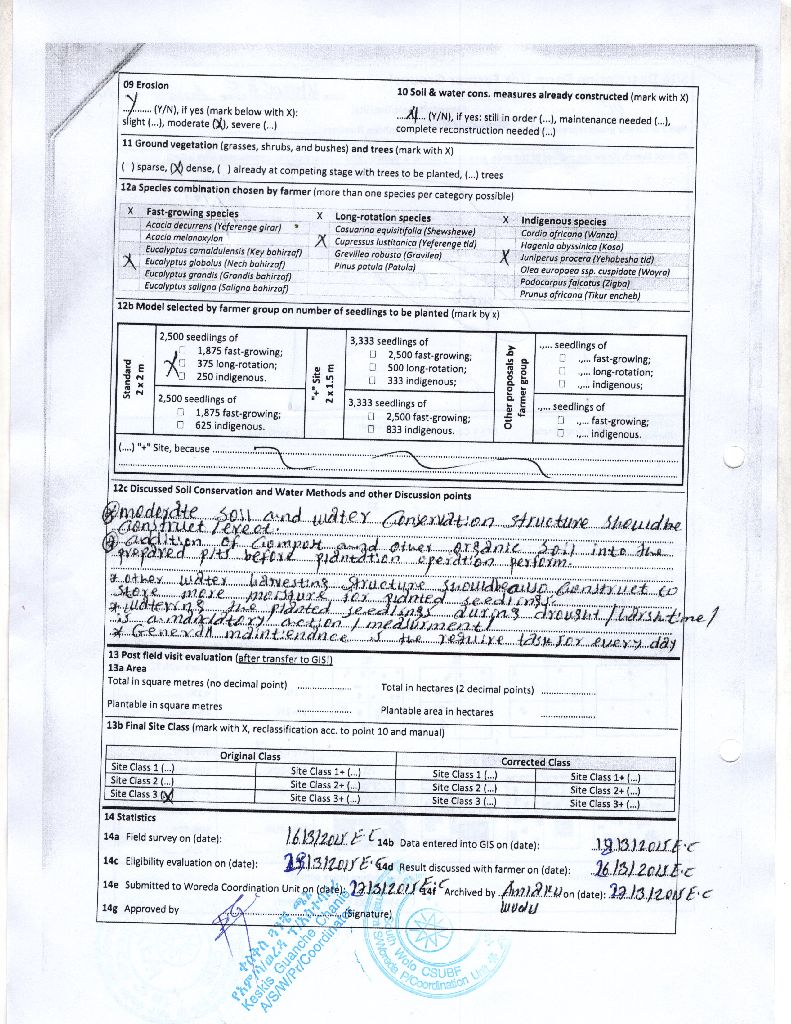 09 Erosion
Y (Y/N), if yes (mark below with X):
slight (...), moderate (X), severe (...)
10 Soil & water cons. measures already constructed (mark with X)
...N... (Y/N), if yes: still in order (...), maintenance needed (...),
complete reconstruction needed (...)
11 Ground vegetation (grasses, shrubs, and bushes) and trees (mark with X)
( ) sparse, (X) dense, ( ) already at competing stage with trees to be planted, (...) trees
12a Species combination chosen by farmer (more than one species per category possible)
X Fast-growing species
Acacia decurrens (Yeferenge girar)
Acacia melanoxylon
Eucalyptus camaldulensis (Key bahirzaf)
X Eucalyptus globolus (Nech bahirzaf)
Eucalyptus grandis (Grandis bahirzaf)
Eucalyptus saligna (Saligna bahirzaf)
X Long-rotation species
Casuarina equisitifolia (Shewshewe)
X Cupressus lusitanica (Yeferenge tid)
Grevillea robusta (Gravilea)
Pinus patula (Patula)
X Indigenous species
Cordia africana (Wanza)
Hagenia abyssinica (Koso)
X Juniperus procera (Yehabesha tid)
Olea europaea ssp. cuspidate (Woyra)
Podocarpus falcatus (Zigba)
Prunus africana (Tikur encheb)
12b Model selected by farmer group on number of seedlings to be planted (mark by x)
Standard
2 x 2 m
2,500 seedlings of
1,875 fast-growing;
X 375 long-rotation;
250 indigenous.
2,500 seedlings of
1,875 fast-growing;
625 indigenous.
"+" Site
2 x 1.5 m
3,333 seedlings of
2,500 fast-growing;
500 long-rotation;
333 indigenous;
3,333 seedlings of
2,500 fast-growing;
833 indigenous.
Other proposals by
farmer group
.,... seedlings of
.,... fast-growing;
.,... long-rotation;
.,... indigenous;
.,... seedlings of
.,... fast-growing;
.,... indigenous.
(....) "+" Site, because
12c Discussed Soil Conservation and Water Methods and other Discussion points
moderate soil and water conservation structure shouldbe
construct / erect.
addition of compost and other organic soil into the
prepared pits before plantation operation perform.
* other water harvesting structure should also construct to
store more moisture for planted seedlings.
* watering the planted seedlings during drought / harsh time /
is a mandatory action / measurment /
* General maintenance is the require task for every day
13 Post field visit evaluation (after transfer to GIS!)
13a Area
Total in square metres (no decimal point) ................
Total in hectares (2 decimal points) ................
Plantable in square metres ................
Plantable area in hectares ................
13b Final Site Class (mark with X, reclassification acc. to point 10 and manual)
Original Class
Corrected Class
Site Class 1 (...) Site Class 1+ (...) Site Class 1 (...) Site Class 1+ (...)
Site Class 2 (...) Site Class 2+ (...) Site Class 2 (...) Site Class 2+ (...)
Site Class 3 (X) Site Class 3+ (...) Site Class 3 (...) Site Class 3+ (...)
14 Statistics
14a Field survey on (date): 16/3/2015 E.C
14b Data entered into GIS on (date): 19/3/2015 E.C
14c Eligibility evaluation on (date): /3/2015 E.C
14d Result discussed with farmer on (date): 26/3/2015 E.C
14e Submitted to Woreda Coordination Unit on (date): 27/3/2015 E.C
14f Archived by on (date): 27/3/2015 E.C
14g Approved by ................(Signature)
Keskis Guanche Chanie
A/S/W/Pr/Coordinator
South Wolo CSUBF